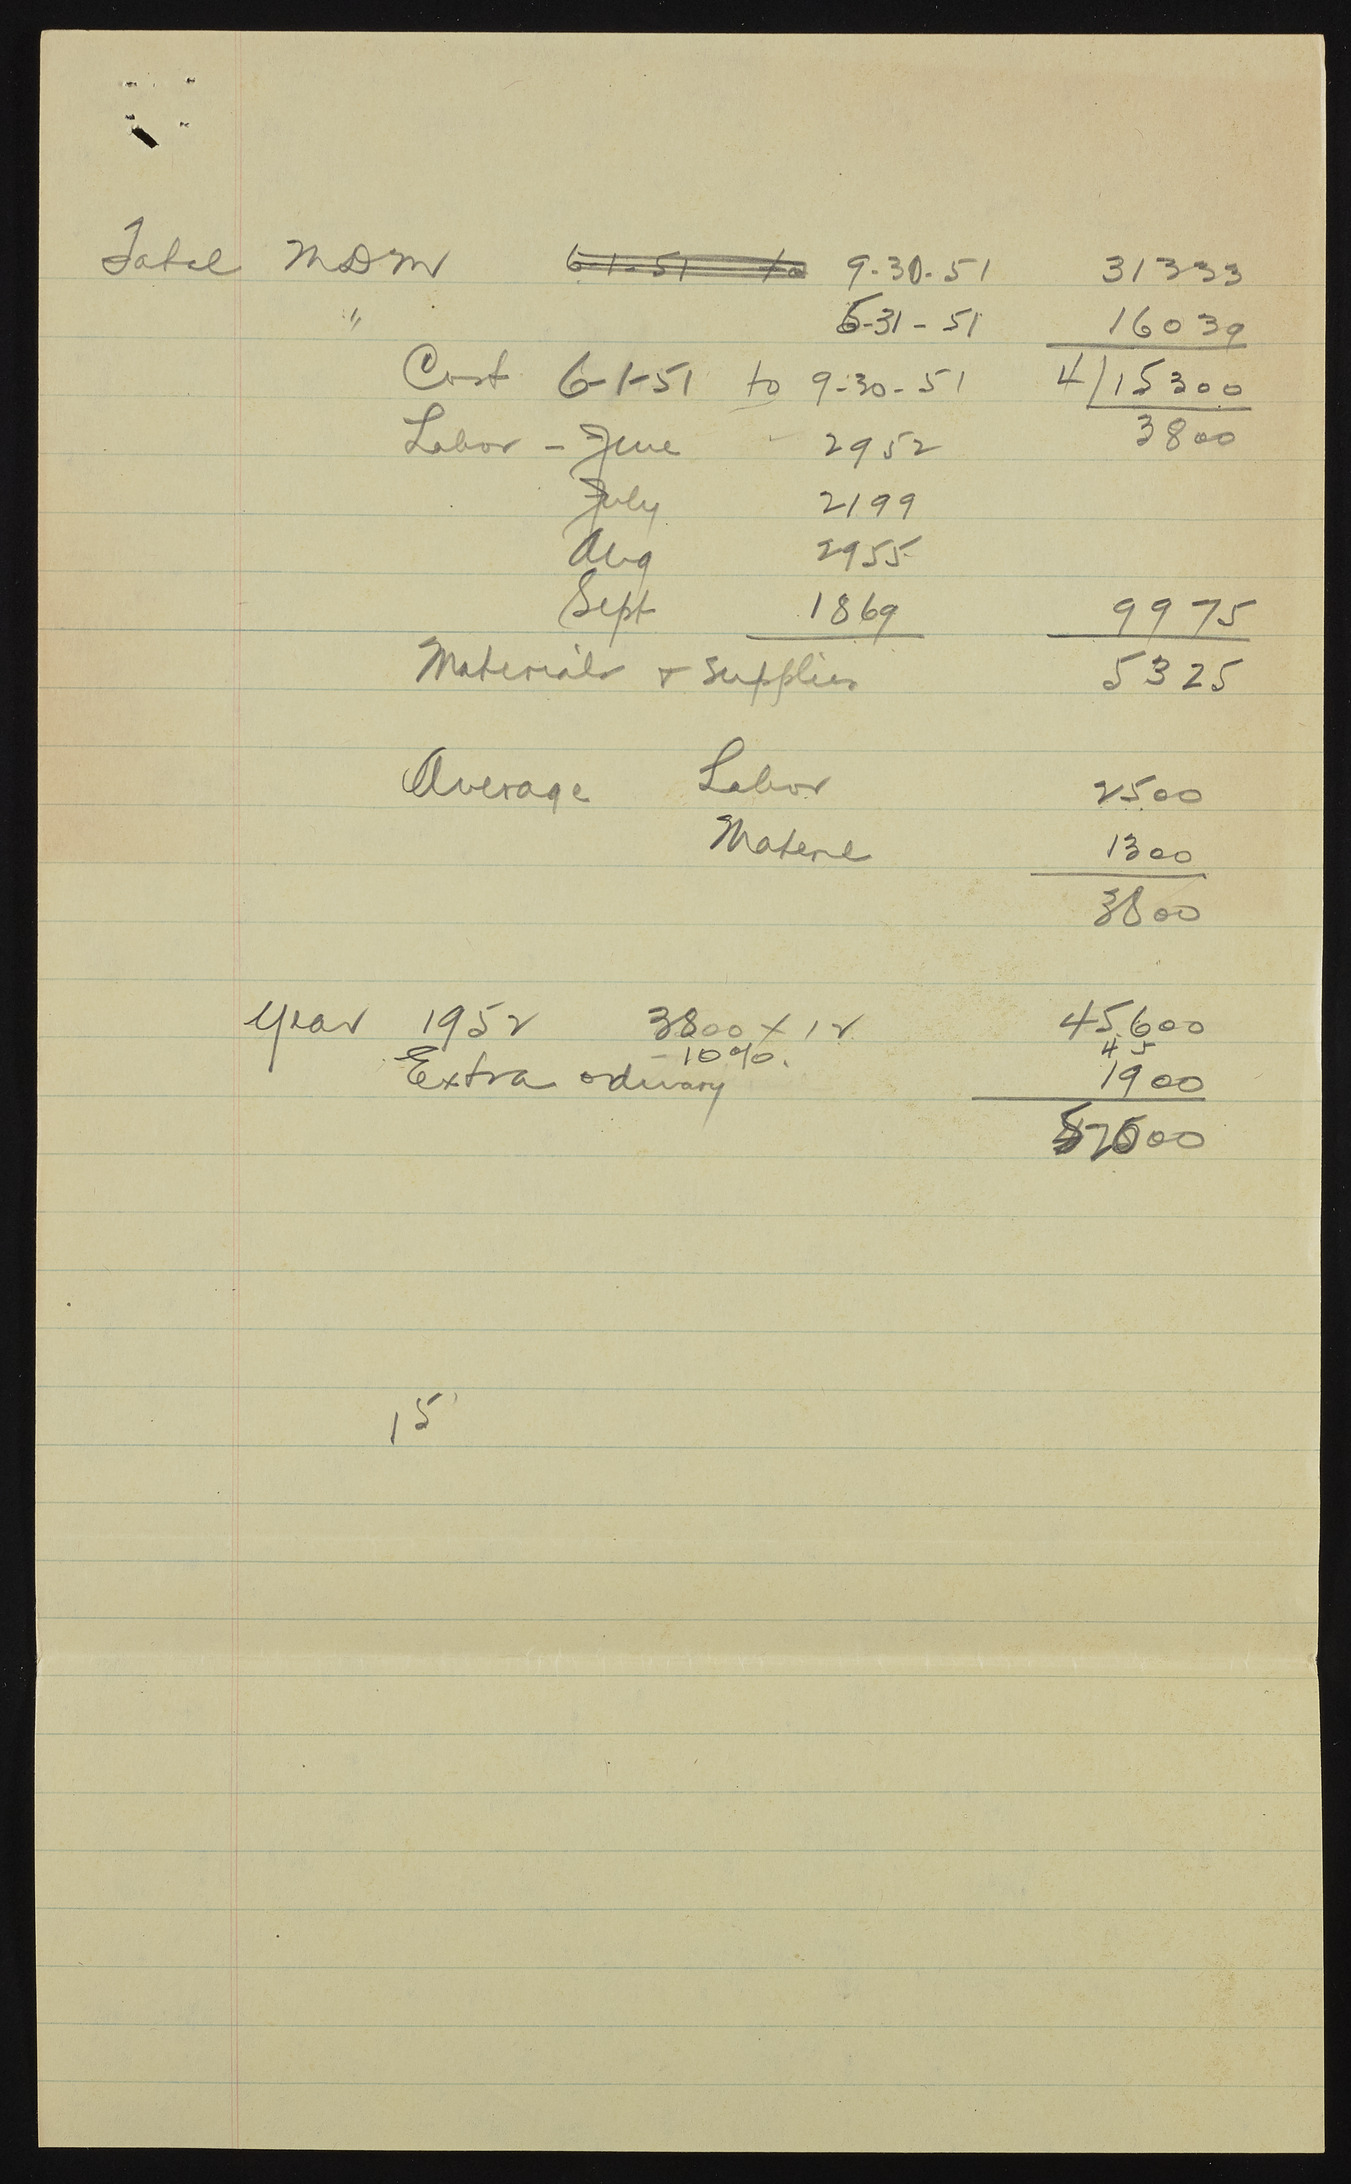 Total MDM 6-1-51 to 9-30-51 31333
" 5-31-51 16039
Cost 6-1-51 to 9-30-51 4/15300
Labor - June 2952 3800
July 2199
Aug 2955
Sept 1869 9975
Materials & supplies 5325
Average Labor 2500
Material 1300
3800
Year 1952 3800 x 12 45,600
-10%. 45
Extra ordinary 1900
00
15